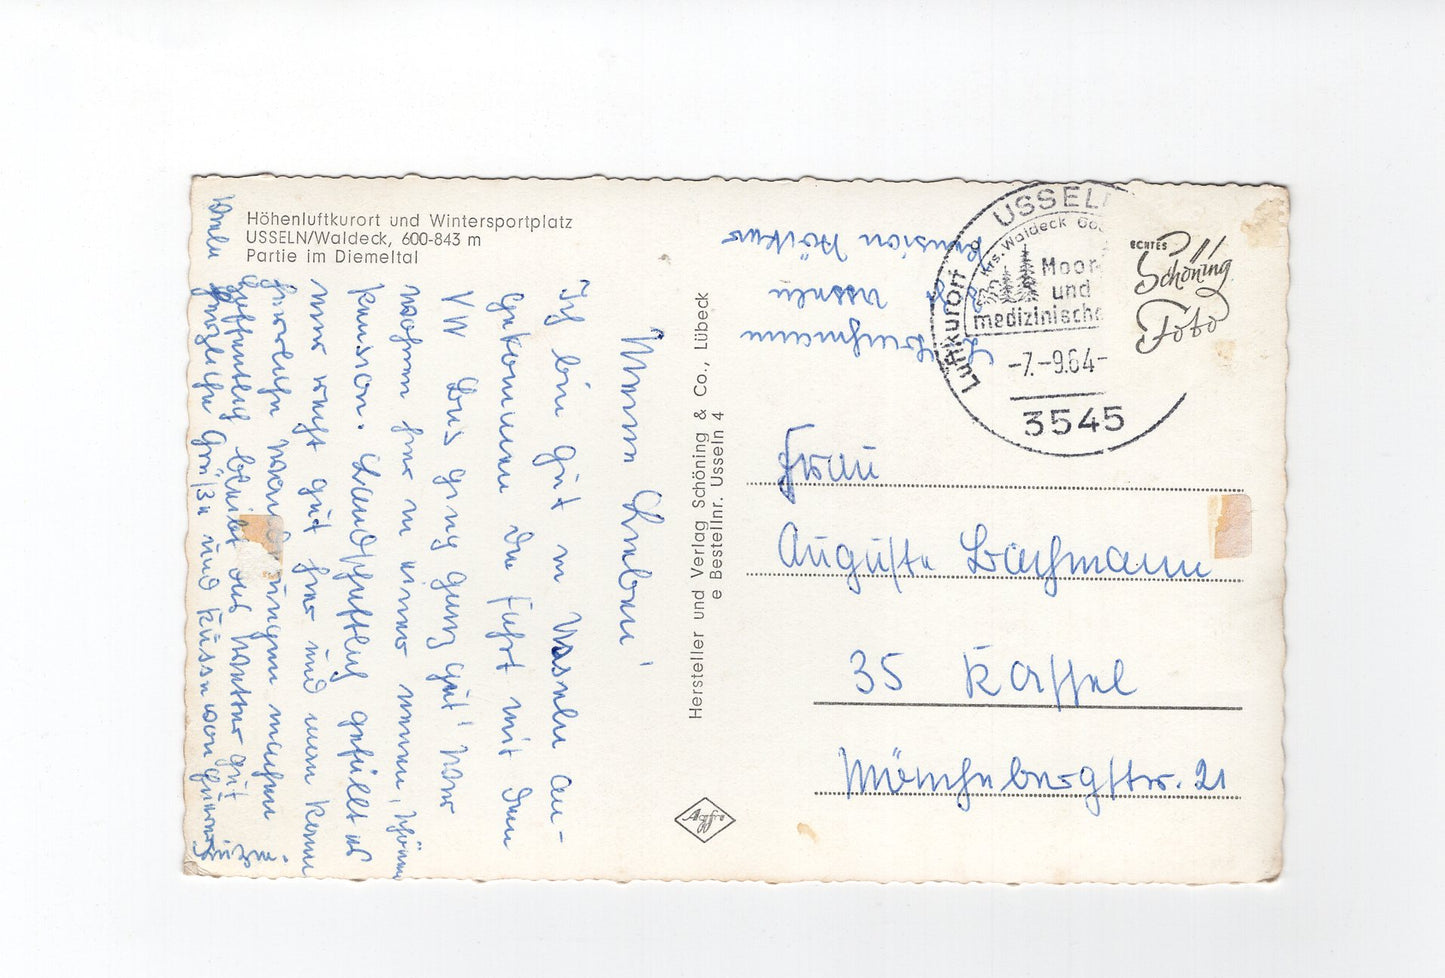 Höhenluftkurort und Wintersportplatz
USSELN/Waldeck, 600-843 m
Partie im Diemeltal
Meine Lieben!
Ich bin gut in Usseln an-
gekommen die Fahrt mit dem
VW Bus ging ganz gut! Wir
wohnen hier in einer neuen, schönen
Pension. Landschaftlich gefällt es
mir recht gut hier und man kann
herrliche Wanderungen machen
hoffentlich bleibt das Wetter gut
Herzliche Grüße und Küsse von
Hersteller und Verlag Schöning & Co., Lübeck
e Bestellnr. Usseln 4
Agfa
L. Bachmann
Usseln
Pension
Luftkurort USSELN
Krs. Waldeck
Moor-
und
medizinische
-7.-9.64-
3545
ECHTES
Schöning
Foto
Frau
Auguste Bachmann
35 Kassel
Mönchebergstr. 21